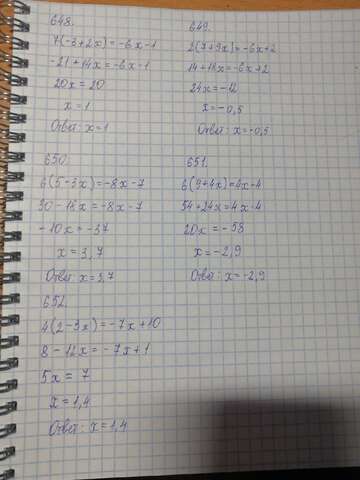 648.
7(-3+2x)=-6x-1
-21+14x=-6x-1
20x=20
x=1
Ответ: x=1
649.
2(7+9x)=-6x+2
14+18x=-6x+2
24x=-12
x=-0,5
Ответ: x=-0,5
650.
6(5-3x)=-8x-7
30-18x=-8x-7
-10x=-37
x=3,7
Ответ: x=3,7
651.
6(9+4x)=4x-4
54+24x=4x-4
20x=-58
x=-2,9
Ответ: x=-2,9
652.
4(2-3x)=-7x+10
8-12x=-7x+1
5x=7
x=1,4
Ответ: x=1,4